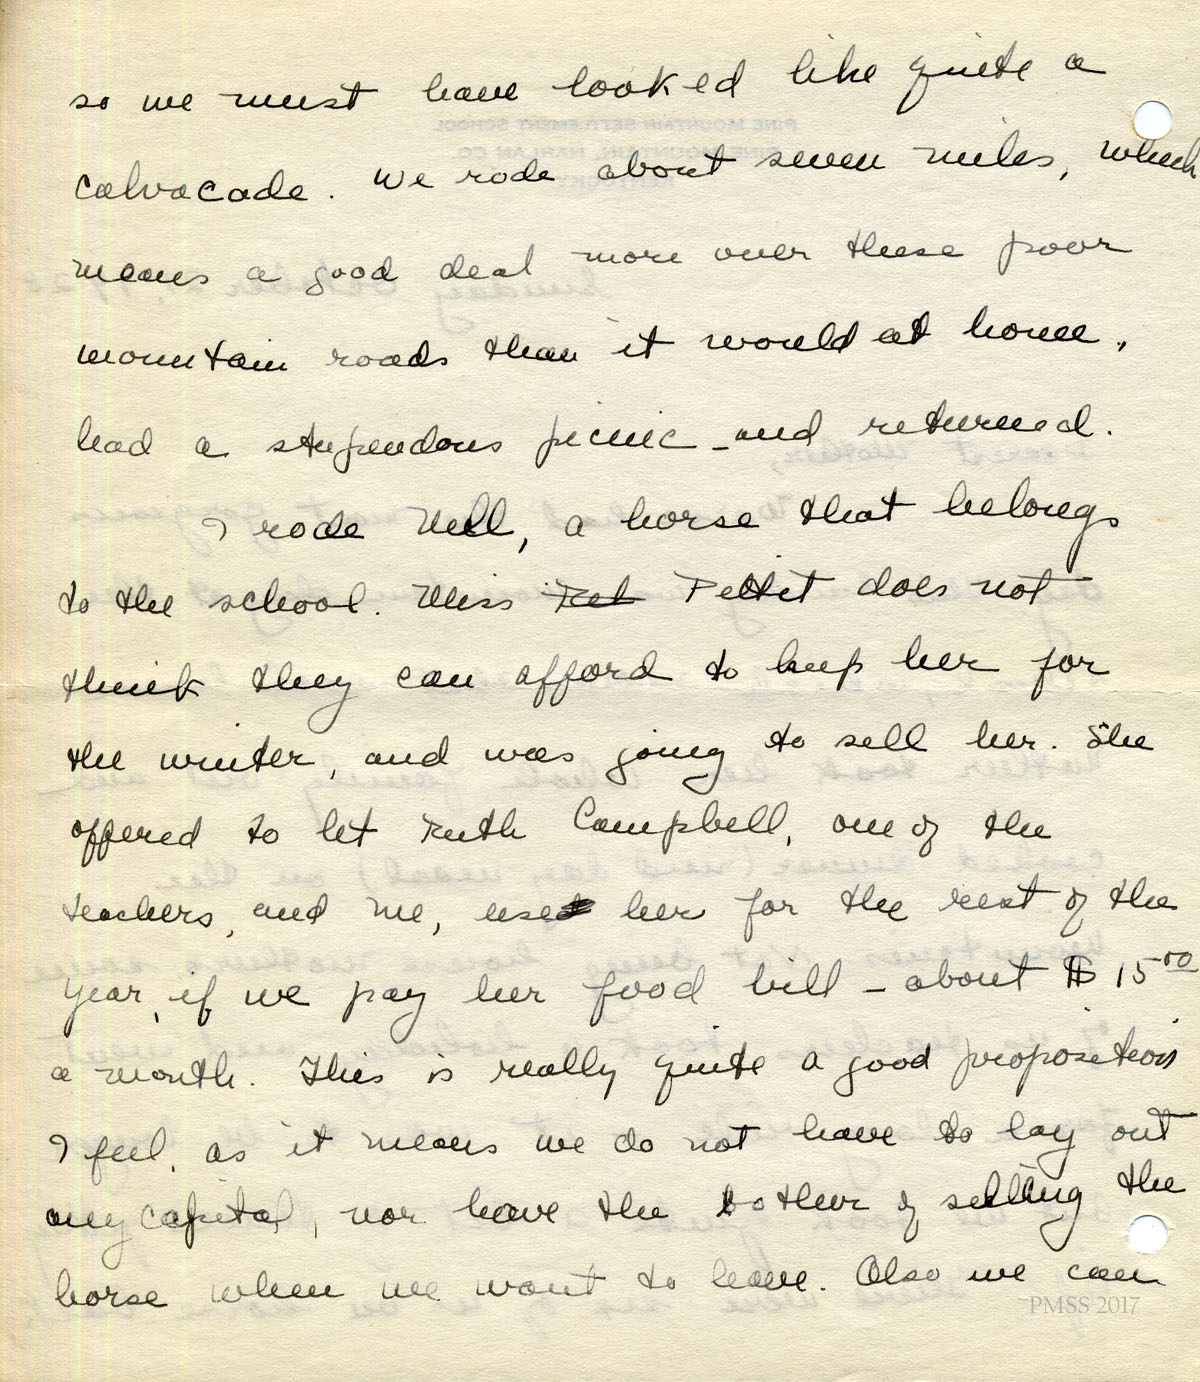 so we must have looked like quite a
calvacade. We rode about seven miles, which
means a good deal more over these poor
mountain roads than it would at home,
had a stupendous picnic - and returned.
I rode Nell, a horse that belongs
to the school. Miss Pet Pettit does not
think they can afford to keep her for
the winter, and was going to sell her. She
offered to let Ruth Campbell, one of the
teachers, and me, use her for the rest of the
year, if we pay her food bill - about $15.00
a month. This is really quite a good proposition
I feel, as it means we do not have to lay out
any capital, nor have the bother of selling the
horse when we want to leave. Also we can
PMSS 2017